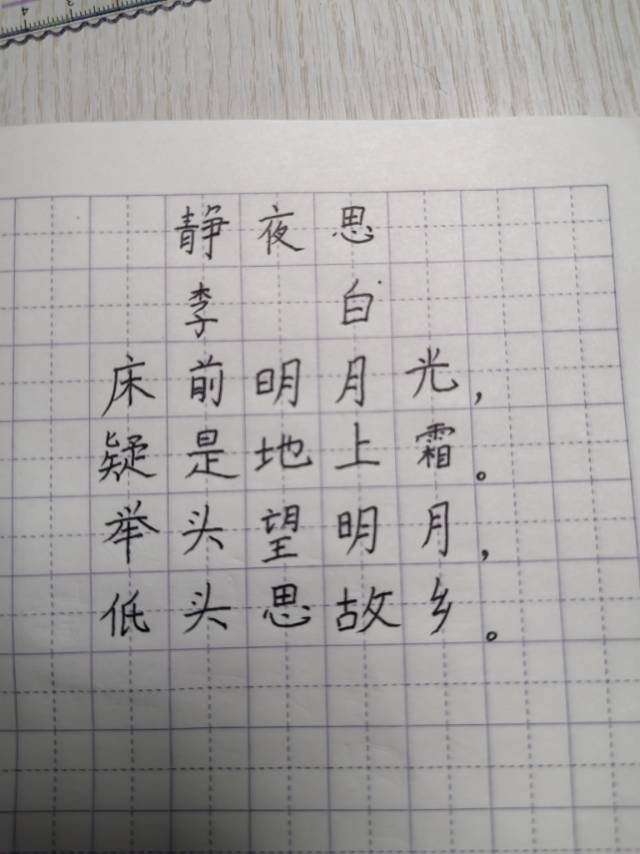 静夜思
李 白
床前明月光，
疑是地上霜。
举头望明月，
低头思故乡。